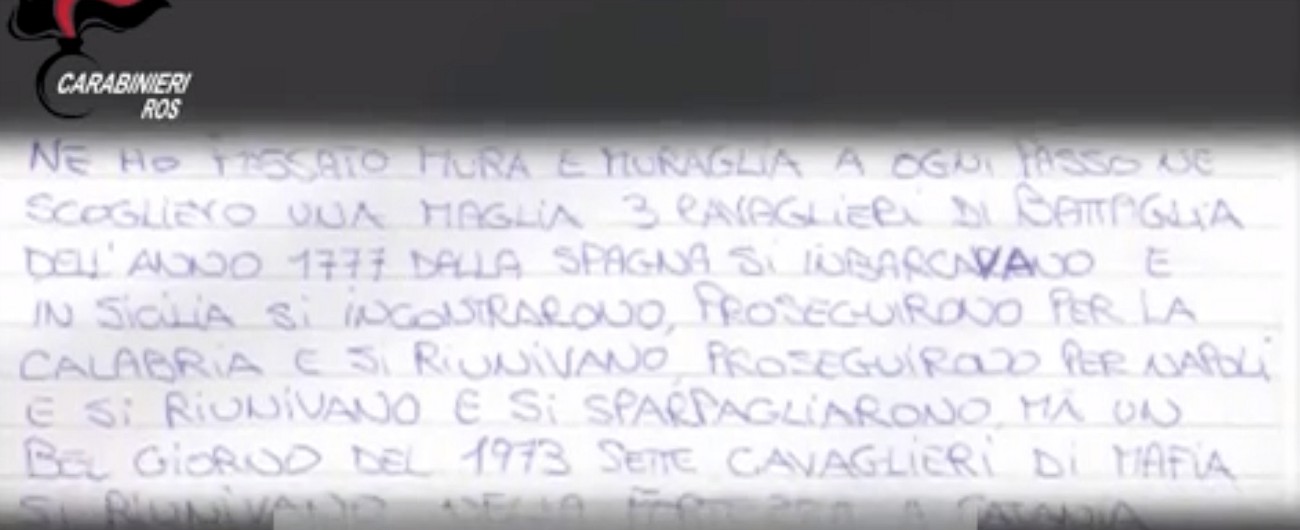 CARABINIERI
ROS
NE HO MESSATO MURA E MURAGLIA A OGNI PASSO NE
SCOGLIEVO UNA MAGLIA 3 CAVAGLIERI DI BATTAGLIA
DELL'ANNO 1777 DALLA SPAGNA Si iNBARCAVANO E
IN SiCiLiA Si iNCONTRARONO, PROSEGUIRONO PER LA
CALABRiA E Si RiUNiVANO, PROSEGUiRONO PER NAPOLi
E Si RiUNiVANO E Si SPARPAGLiARONO, MA UN
BEL GiORNO DEL 1973 SETTE CAVAGLIERi Di MAFiA
Si RiUNiVANO A CATANiA